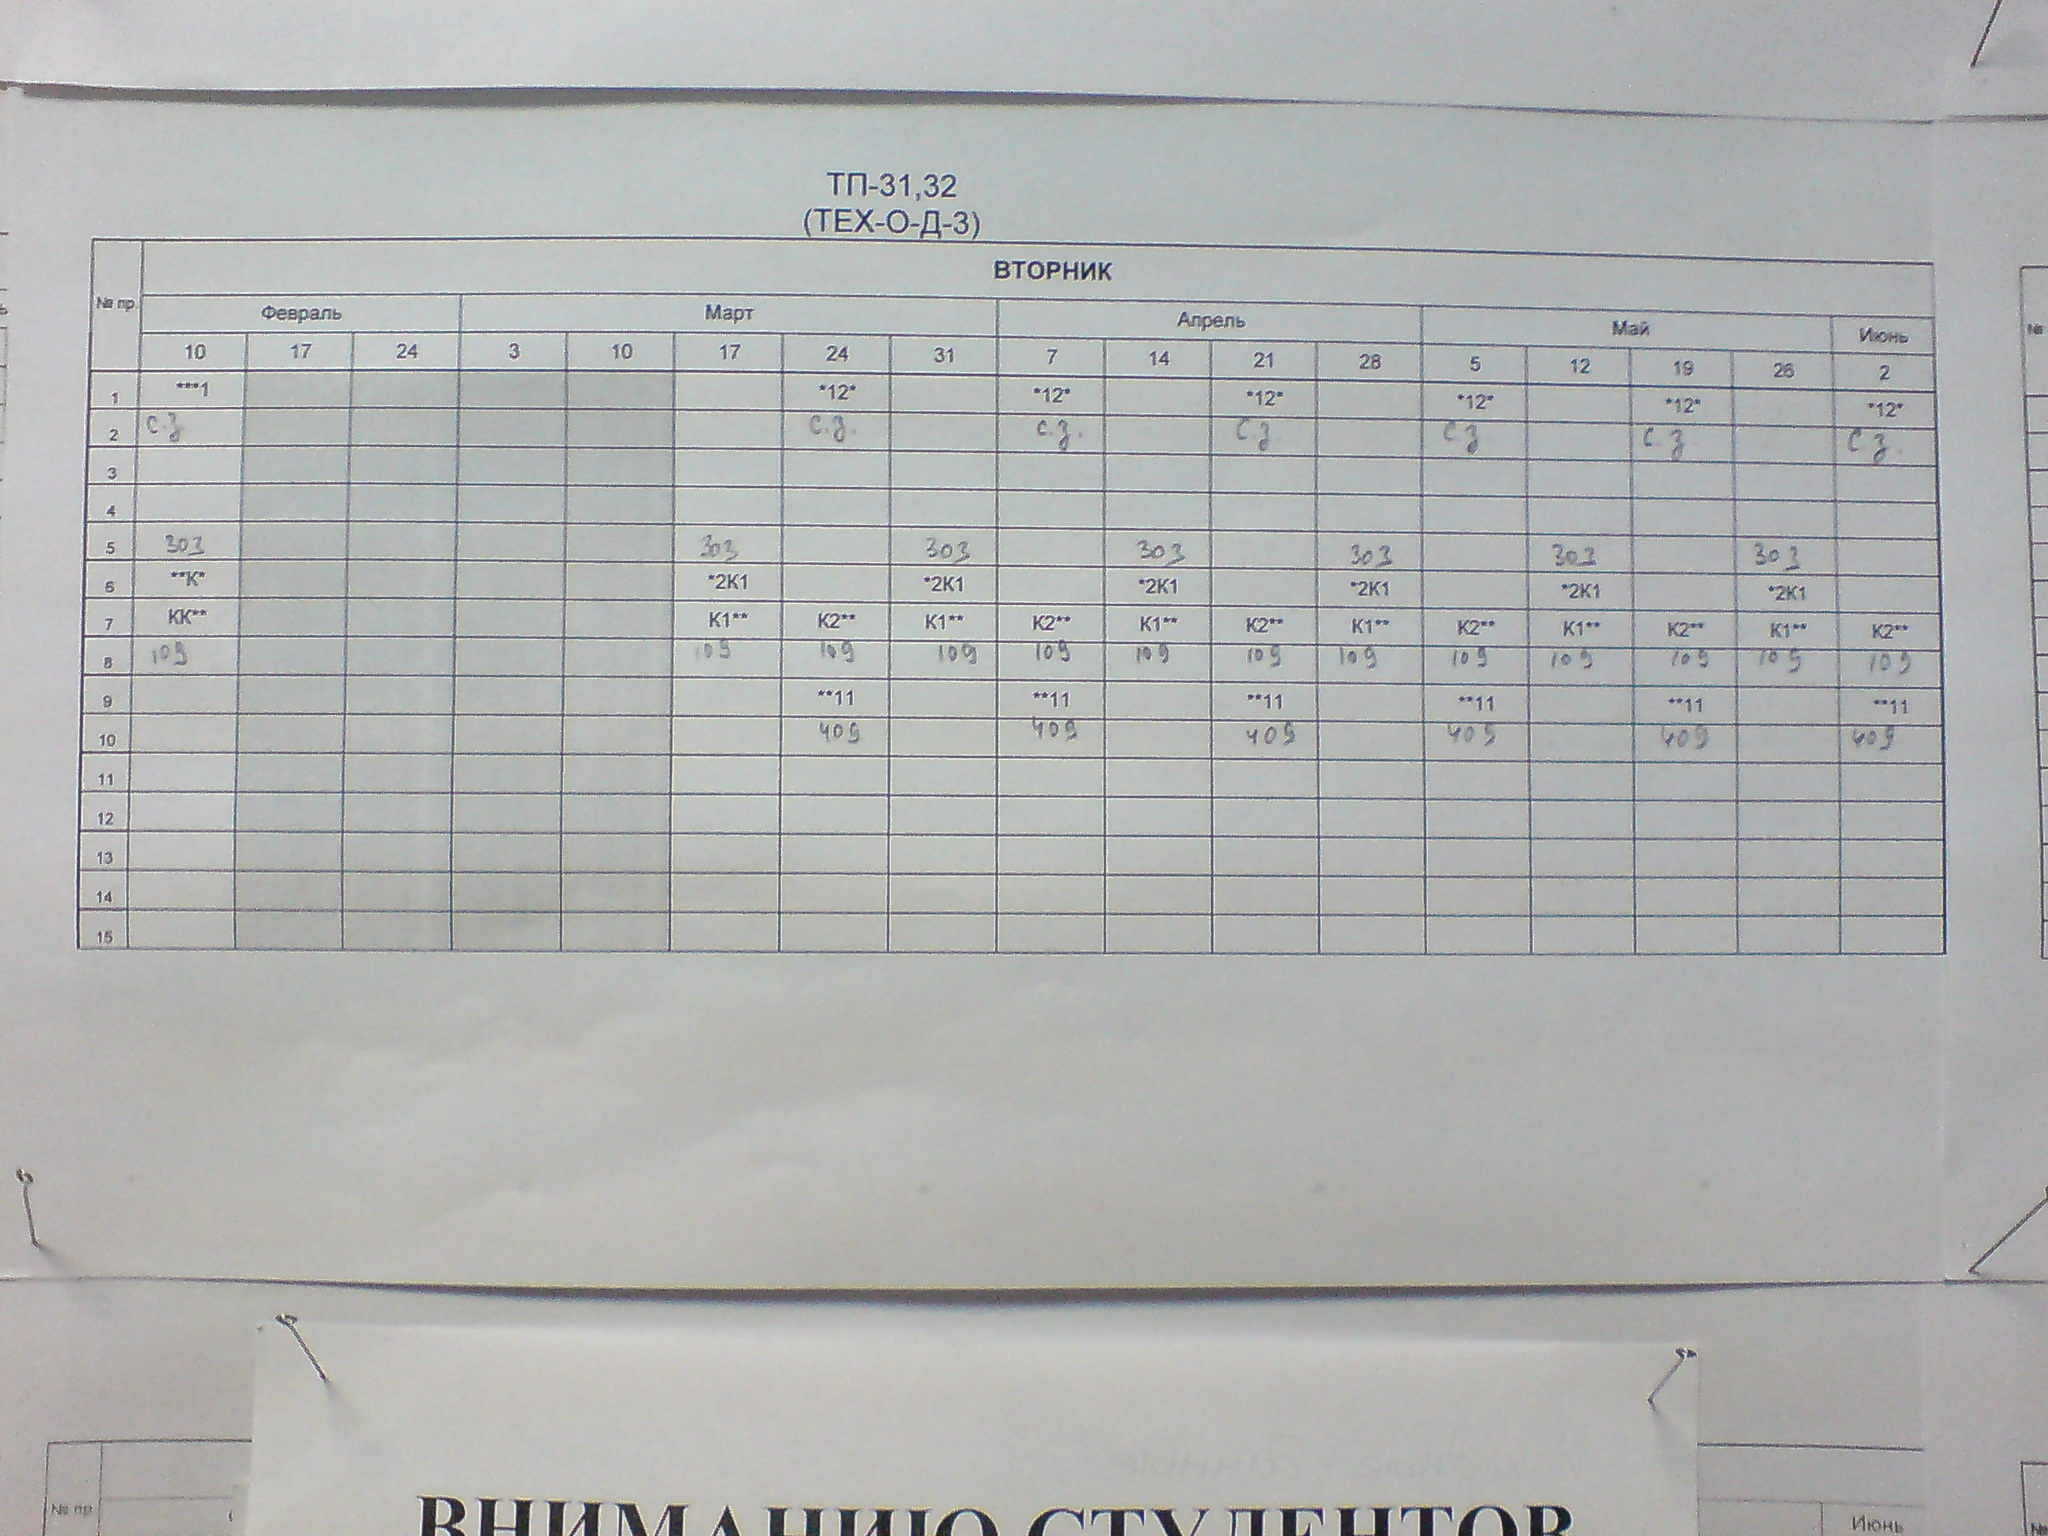 ТП-31,32
(ТЕХ-О-Д-3)
№ пр. ВТОРНИК
Февраль Март Апрель Май Июнь
10 17 24 3 10 17 24 31 7 14 21 28 5 12 19 26 2
1 ***1 *12* *12* *12* *12* *12* *12*
2 с.з с.з. с.з. с.з с.з с.з с.з.
3
4
5 303 303 303 303 303 303 303
6 **К* *2К1 *2К1 *2К1 *2К1 *2К1 *2К1
7 КК** К1** К2** К1** К2** К1** К2** К1** К2** К1** К2** К1** К2**
8 109 109 109 109 109 109 109 109 109 109 109 109 109
9 **11 **11 **11 **11 **11 **11
10 409 409 409 409 409 409
11
12
13
14
15
№ пр Июнь
ВНИМАНИЮ СТУДЕНТОВ